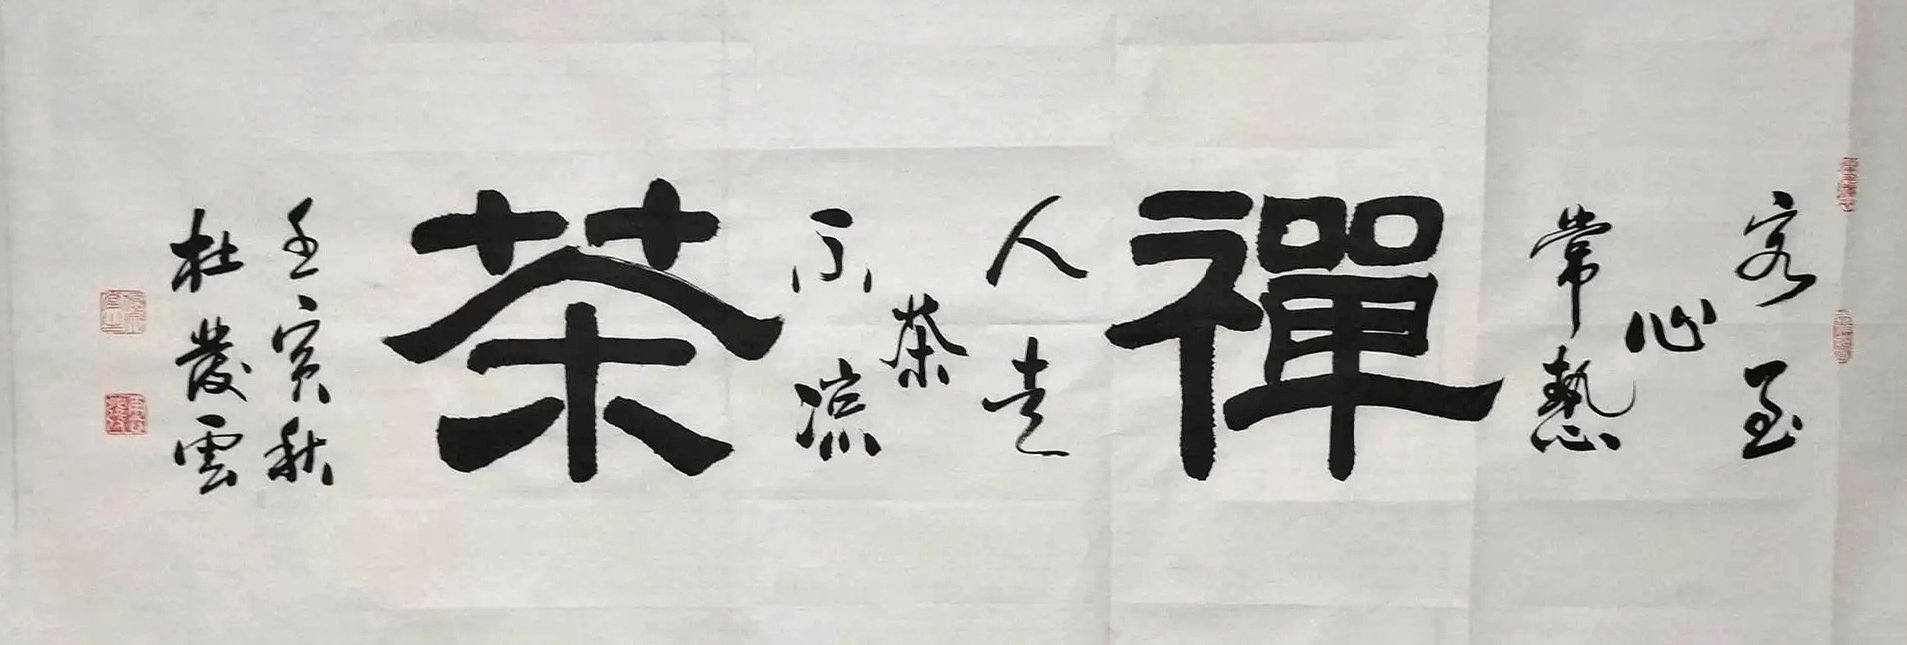 客至
心
常熱
禪
人走
茶
不涼
茶
壬寅秋
杜發雲